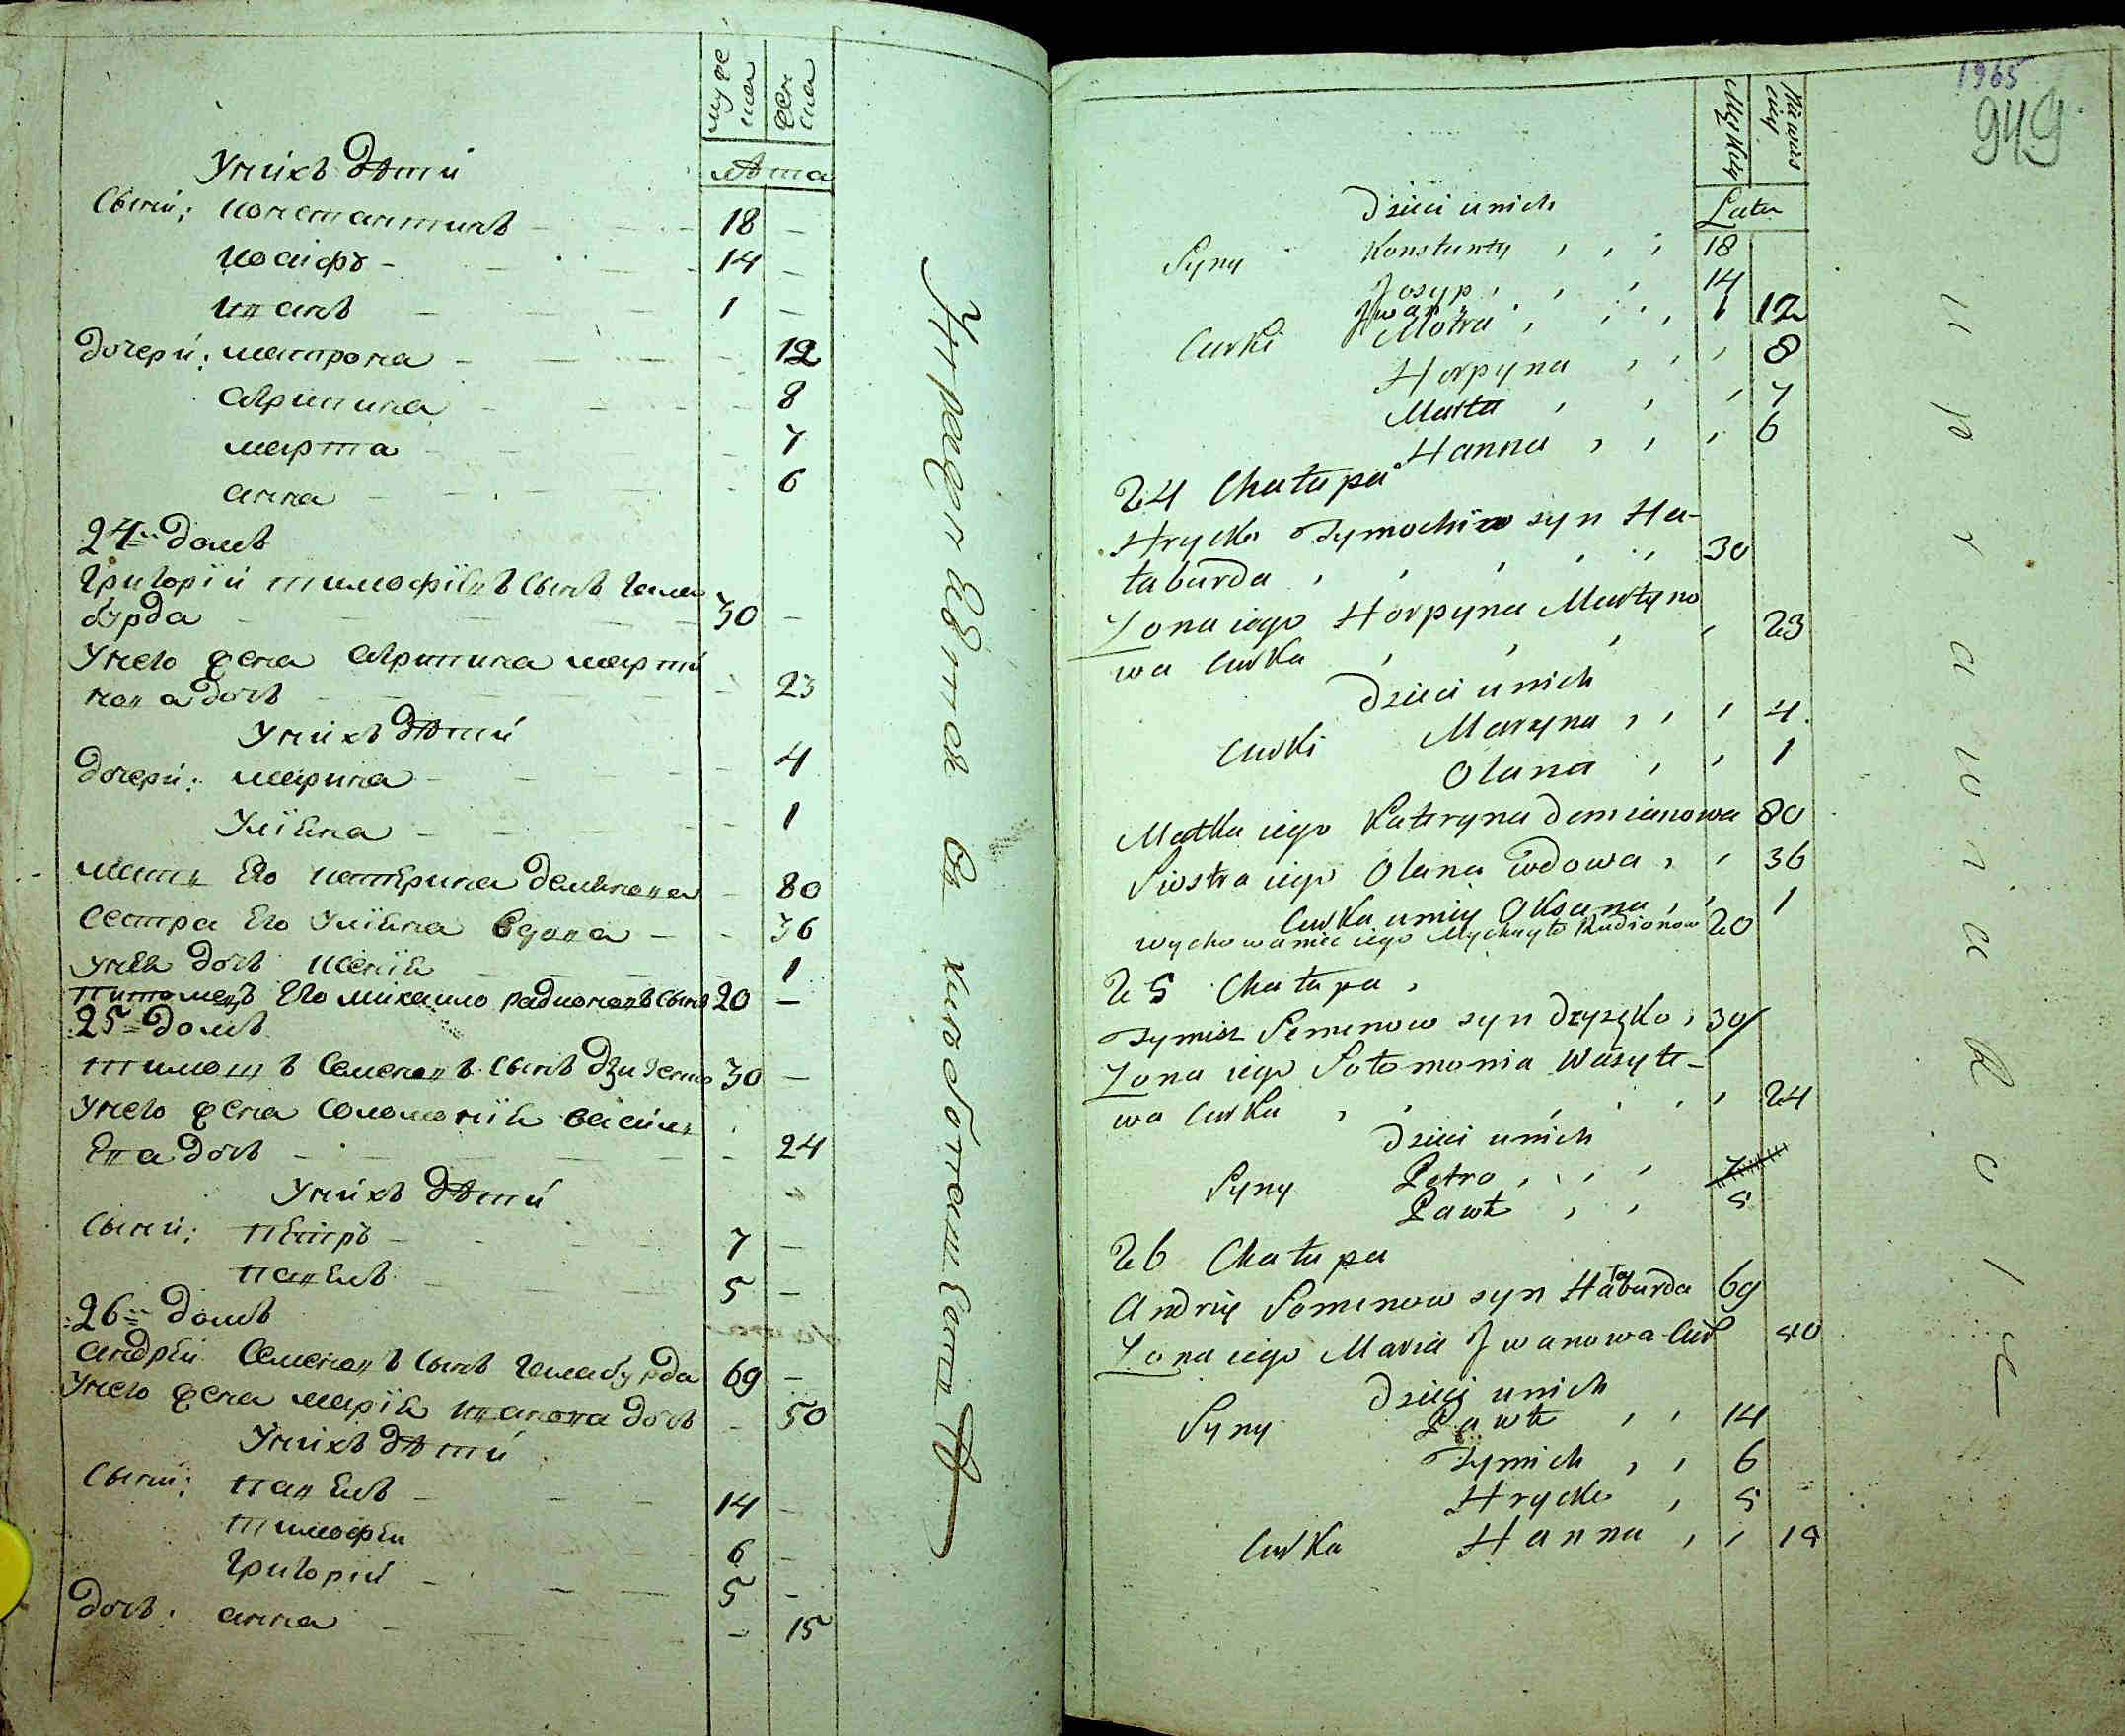 муже
ска
жен
ска
лѣта
У нихъ дѣти
Сыни: константинъ 18 -
иосифъ - 14 -
иванъ 1 -
дочери: матрона - 12
агрипина - 8
марта - 7
анна - 6
24. домъ
Григорій тимофѣевъ сынъ Гала
бурда 30 -
У него жена агрипина марти
нова дочь - 23
У нихъ дѣти
дочери: марина - 4
Уліяна - 1
мать Его катерина демянова - 80
сестра Его Уліяна вдова - 36
У нея дочь ксенія 1
питомецъ Его михаило радионовъ сынъ 20 -
25 домъ
тимошъ Семеновъ сынъ 30 -
У него жена соломонія васил
Ева дочь - 24
У нихъ дѣти
Сыни: петръ - 7 -
павелъ 5 -
26 домъ
андрей Семеновъ сынъ Галабурда 69 -
У него жена марія иванова дочь - 50
У нихъ дѣти
Сыни: павелъ - 14 -
тимофей 6 -
Григорій - 5 -
дочь: анна - 15
1965
949
Mężkiy
Niewas
ciey
Lata
Dzieci u nich
Syny Konstanty 18
Josyp 14
Jwan 1
Curki Motra 12
Horpyna 8
Marta 7
Hanna 6
24 Chałupa
Hrycko Tymochiw syn Ha-
łaburda 30
Zona iego Horpyna Martyno
wa Curka 23
Dzieci u nich
Curki Maryna 4
Olana 1
Matka iego Kateryna Demianowa 80
Siostra iego Olana wdowa 36
Curka u niey Oksana 1
wychowaniec iego Mychayło Rudionow 20
25 Chałupa
Tymisz Semenow syn 30
Zona iego Sołomonia Wasyle-
wa Curka 24
Dzieci u nich
Syny Petro 7
Pawło 5
26 Chałupa
Andriy Semenow syn Hałaburda 69
Zona iego Maria Jwanowa Cur 50
Dzieci u nich
Syny Pawło 14
Tymich 6
Hrycko 5
Curka Hanna 15